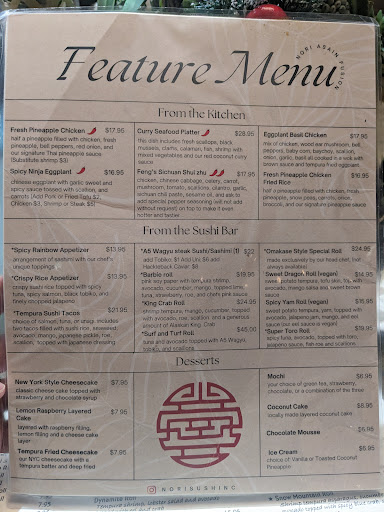 Feature Menu
NORI ASAIN FUSION
From the Kitchen
Fresh Pineapple Chicken $17.95
half a pineapple filled with chicken, fresh
pineapple, bell peppers, red onion, and
our signature Thai pineapple sauce
(Substitute shrimp $3)
Spicy Ninja Eggplant $16.95
chinese eggplant with garlic sweet and
spicy sauce topped with scallion, and
carrots (Add Pork or Fried Tofu $2,
Chicken $3, Shrimp or Steak $5)
Curry Seafood Platter $28.95
this dish includes fresh scallops, black
mussels, clams, calamari, fish, shrimp with
mixed vegetables and our red coconut curry
sauce
Feng's Sichuan Shui zhu $17.95
chicken, chinese cabbage, celery, carrot,
mushroom, tomato, scallions, cilantro, garlic,
sichuan chili paste, sesame oil, and ask to
add special pepper seasoning (will not add
without request) on top to make it even
hotter and better
Eggplant Basil Chicken $17.95
mix of chicken, wood ear mushroom, bell
peppers, baby corn, baychoy, scallion,
onion, garlic, basil all cooked in a wok with
brown sauce and tempura fried eggplant
Fresh Pineapple Chicken
Fried Rice $16.95
half a pineapple filled with chicken, fresh
pineapple, snow peas, carrots, onion,
broccoli, and our signature pineapple sauce
From the Sushi Bar
*Spicy Rainbow Appetizer $13.95
arrangement of sashimi with our chef's
unique toppings
*Crispy Rice Appetizer $13.95
crispy sushi rice topped with spicy
tuna, spicy salmon, black tobiko, and
finely chopped jalapeno
*Tempura Sushi Tacos $21.95
choice of salmon, tuna, or snap. includes
two tacos filled with sushi rice, seaweed,
avocado, mango, japanese pickle, red
scallion, topped with japanese dressing
*A5 Wagyu steak Sushi/Sashimi (1) $22
add Tobiko: $1 Add Uni $6 add
Hackleback Caviar: $8
*Barbie roll $19.95
pink soy paper with tempura shrimp,
avocado, cucumber, mango, topped with
tuna, strawberry, roe, and chefs pink sauce
*King Crab Roll $24.95
tempura shrimp, cucumber, topped with
avocado, roe, scallion, and a generous
amount of Alaskan King Crab
*Surf and Turf Roll $45.00
tuna and avocado topped with A5 Wagyu,
tobiko, and scallions
*Omakase Style Special Roll $24.95
made exclusively by our head chef, (not
always available)
Sweet Dragon Roll (vegan) $14.95
sweet potato tempura, tofu skin, toy, with
avocado, mango salsa mix, sweet brown
sauce
Spicy Yam Roll (vegan) $15.95
sweet potato tempura, yam, topped with
avocado, jalapeno jam, mango, and eel
sauce (our eel sauce is vegan)
*Super Toro Roll $19.95
spicy tuna, avocado, topped with toro,
jalapeno sauce, fish roe and scallions
Desserts
New York Style Cheesecake $7.95
classic cheese cake topped with
strawberry and chocolate syrup
Lemon Raspberry Layered
Cake $7.95
layered with raspberry filling,
lemon filling and a cheese cake
layer
Tempura Fried Cheesecake $7.95
our NYC cheesecake with a
tempura batter and deep fried
Mochi $6.95
your choice of green tea, strawberry,
chocolate, or a combination of the three
Coconut Cake $6.95
locally made layered coconut cake
Chocolate Mousse $6.95
Ice Cream $6.95
choice of: Vanilla or Toasted Coconut
Pineapple
NORISUSHINC
Dynamite Roll
7.95